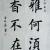 雅何須
香不在